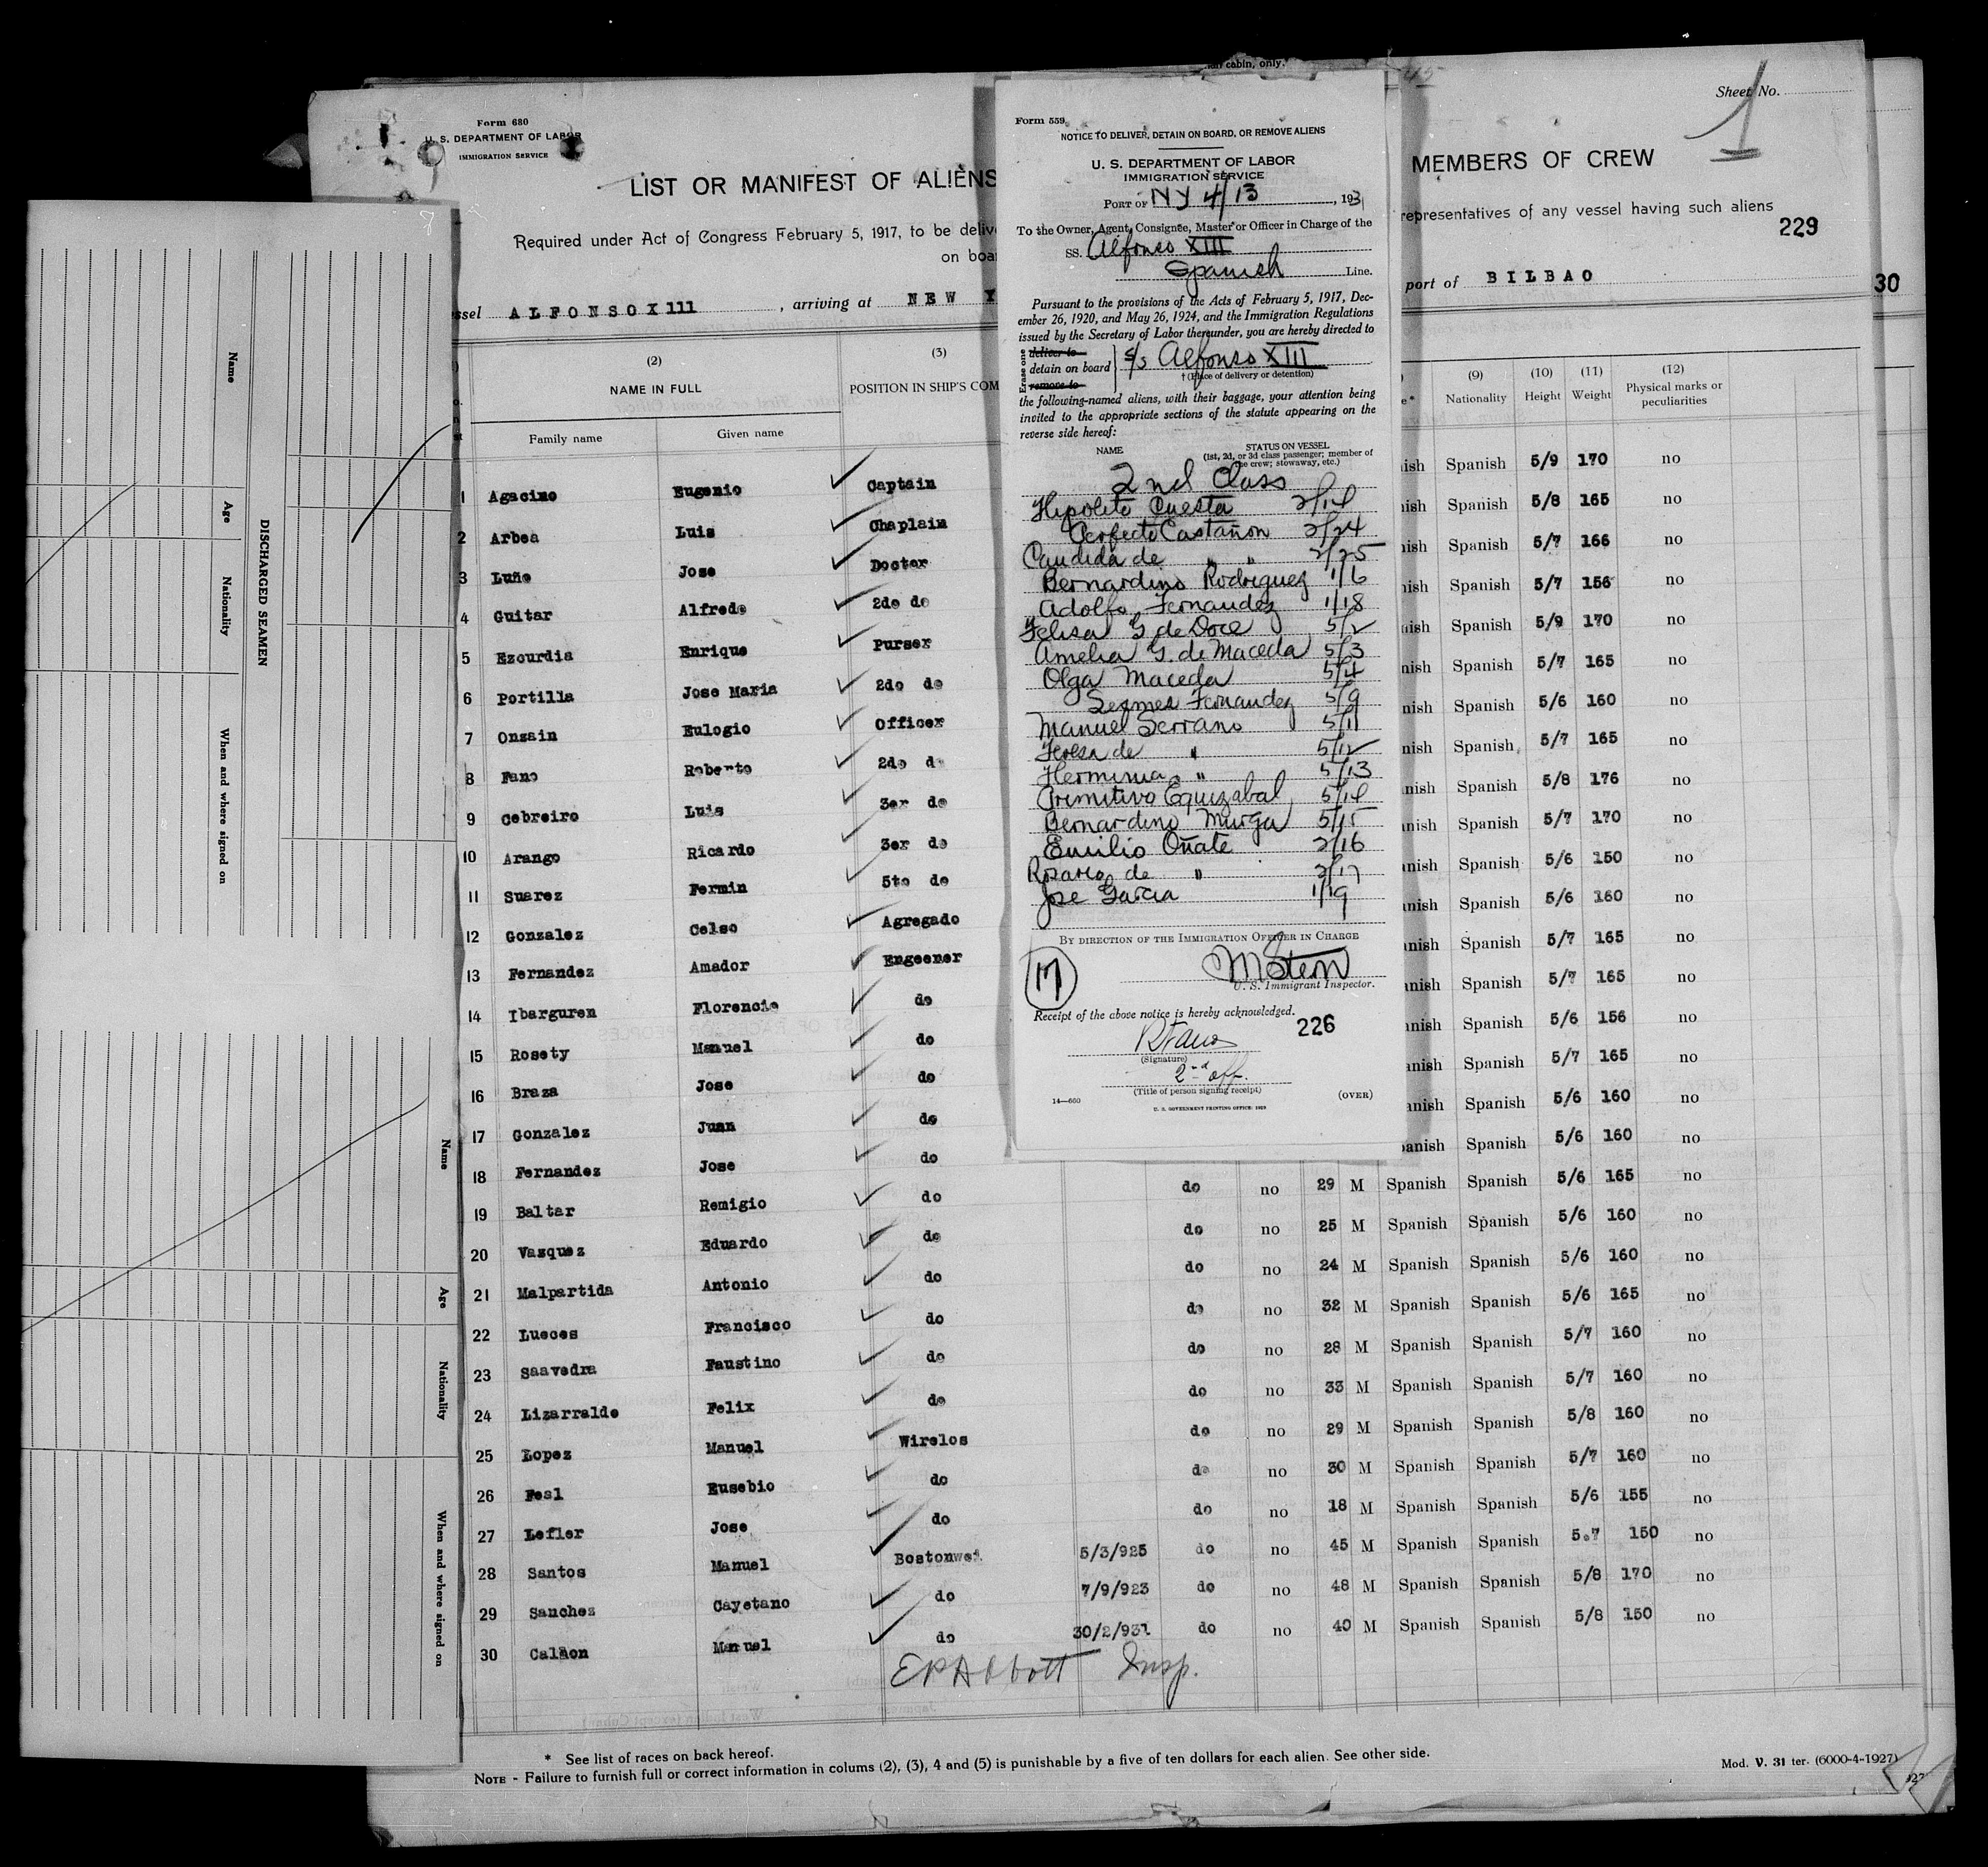 man cabin, only.
Form 680
U. S. DEPARTMENT OF LABOR
IMMIGRATION SERVICE
LIST OR MANIFEST OF ALIENS
MEMBERS OF CREW
Sheet No. 1
Required under Act of Congress February 5, 1917, to be deliv
representatives of any vessel having such aliens
on boa
229
ssel ALFONSO X111, arriving at NEW Y
port of BILBAO
30
(2) (3) (9) (10) (11) (12)
NAME IN FULL POSITION IN SHIP'S COM Nationality Height Weight Physical marks or peculiarities
Family name Given name
1 Agacino Eugenio Captain
2 Arbea Luis Chaplain
3 Luño Jose Doctor
4 Guitar Alfredo 2do do
5 Ezcurdia Enrique Purser
6 Portilla Jose Maria 2do do
7 Onzain Eulogio Officer
8 Fano Roberto 2do do
9 Cebreiro Luis 3er do
10 Arango Ricardo 3er do
11 Suarez Fermin 5to do
12 Gonzalez Celso Agregado
13 Fernandez Amador Engeener
14 Ibarguren Florencio do
15 Rosety Manuel do
16 Braza Jose do
17 Gonzalez Juan do
18 Fernandez Jose do
19 Baltar Remigio do
20 Vasquez Eduardo do
21 Malpartida Antonio do
22 Lueces Francisco do
23 Saavedra Faustino do
24 Lizarralde Felix do
25 Lopez Manuel Wirelos
26 Fesl Eusebio do
27 Lefler Jose do
28 Santos Manuel Bostonwei
29 Sanchez Cayetano do
30 Calñon Manuel do
ish Spanish 5/9 170 no
ish Spanish 5/8 165 no
ish Spanish 5/7 166 no
nish Spanish 5/7 156 no
nish Spanish 5/9 170 no
nish Spanish 5/7 165 no
nish Spanish 5/6 160 no
nish Spanish 5/7 165 no
nish Spanish 5/8 176 no
nish Spanish 5/7 170 no
anish Spanish 5/6 150 no
anish Spanish 5/6 160 no
anish Spanish 5/7 165 no
anish Spanish 5/7 165 no
anish Spanish 5/6 156 no
anish Spanish 5/7 165 no
anish Spanish 5/6 160 no
panish Spanish 5/6 160 no
do no 29 M Spanish Spanish 5/6 165 no
do no 25 M Spanish Spanish 5/6 160 no
do no 24 M Spanish Spanish 5/6 160 no
do no 32 M Spanish Spanish 5/6 165 no
do no 28 M Spanish Spanish 5/7 160 no
do no 33 M Spanish Spanish 5/7 160 no
do no 29 M Spanish Spanish 5/8 160 no
do no 30 M Spanish Spanish 5/7 160 no
do no 18 M Spanish Spanish 5/6 155 no
5/3/925 do no 45 M Spanish Spanish 5.7 150 no
7/9/923 do no 48 M Spanish Spanish 5/8 170 no
30/2/931 do no 40 M Spanish Spanish 5/8 150 no
E P Abbott Insp.
* See list of races on back hereof.
NOTE - Failure to furnish full or correct information in colums (2), (3), 4 and (5) is punishable by a five of ten dollars for each alien. See other side.
Mod. V. 31 ter. (6000-4-1927)
927
Form 559
NOTICE TO DELIVER, DETAIN ON BOARD, OR REMOVE ALIENS
U. S. DEPARTMENT OF LABOR
IMMIGRATION SERVICE
PORT OF NY 4/13, 193
To the Owner, Agent, Consignee, Master or Officer in Charge of the
SS. Alfonso XIII
Spanish Line.
Pursuant to the provisions of the Acts of February 5, 1917, Dec-
ember 26, 1920, and May 26, 1924, and the Immigration Regulations
issued by the Secretary of Labor thereunder, you are hereby directed to
Erase one
deliver to
detain on board S/S Alfonso XIII
remove to
† (Place of delivery or detention)
the following-named aliens, with their baggage, your attention being
invited to the appropriate sections of the statute appearing on the
reverse side hereof:
NAME STATUS ON VESSEL
(1st, 2d, or 3d class passenger; member of
the crew; stowaway, etc.)
2nd Class
Hipolito Cuesta 2/14
Perfecto Castañon 2/24
Candida de " " 2/25
Bernardino Rodriguez 1/6
Adolfo Fernandez 1/18
Felisa G de Doce 5/2
Amelia G. de Maceda 5/3
Olga Maceda 5/4
Fernandez 5/9
Manuel Serrano 5/11
Teresa de " 5/12
Herminia " 5/13
Primitivo Equizabal 5/14
Bernardino Murga 5/15
Emilio Oñate 2/16
Rosario de " 2/17
Jose Garcia 1/19
BY DIRECTION OF THE IMMIGRATION OFFICER IN CHARGE
17
M Stern
U. S. Immigrant Inspector.
Receipt of the above notice is hereby acknowledged.
226
R Fano
(Signature)
2nd off.
(Title of person signing receipt)
14—660
(OVER)
U. S. GOVERNMENT PRINTING OFFICE: 1929
DISCHARGED SEAMEN
Name Age Nationality When and where signed on
Name Age Nationality When and where signed on